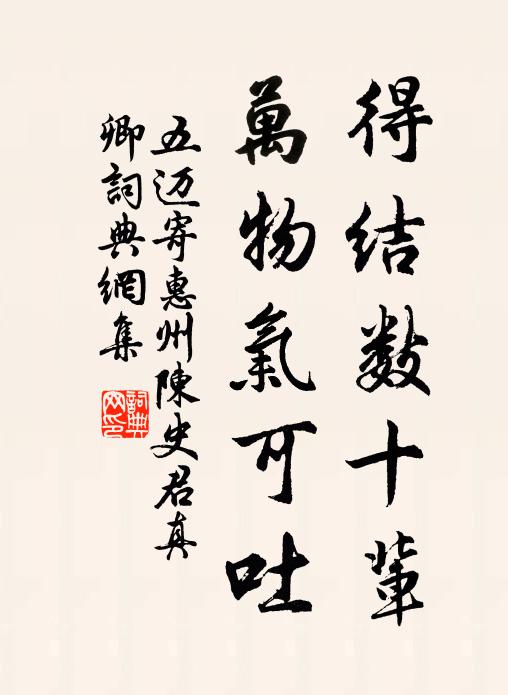 得结数十輩
萬物氣可吐
五迈寄惠州陳史君真
卿詞典網集
詞典
网印